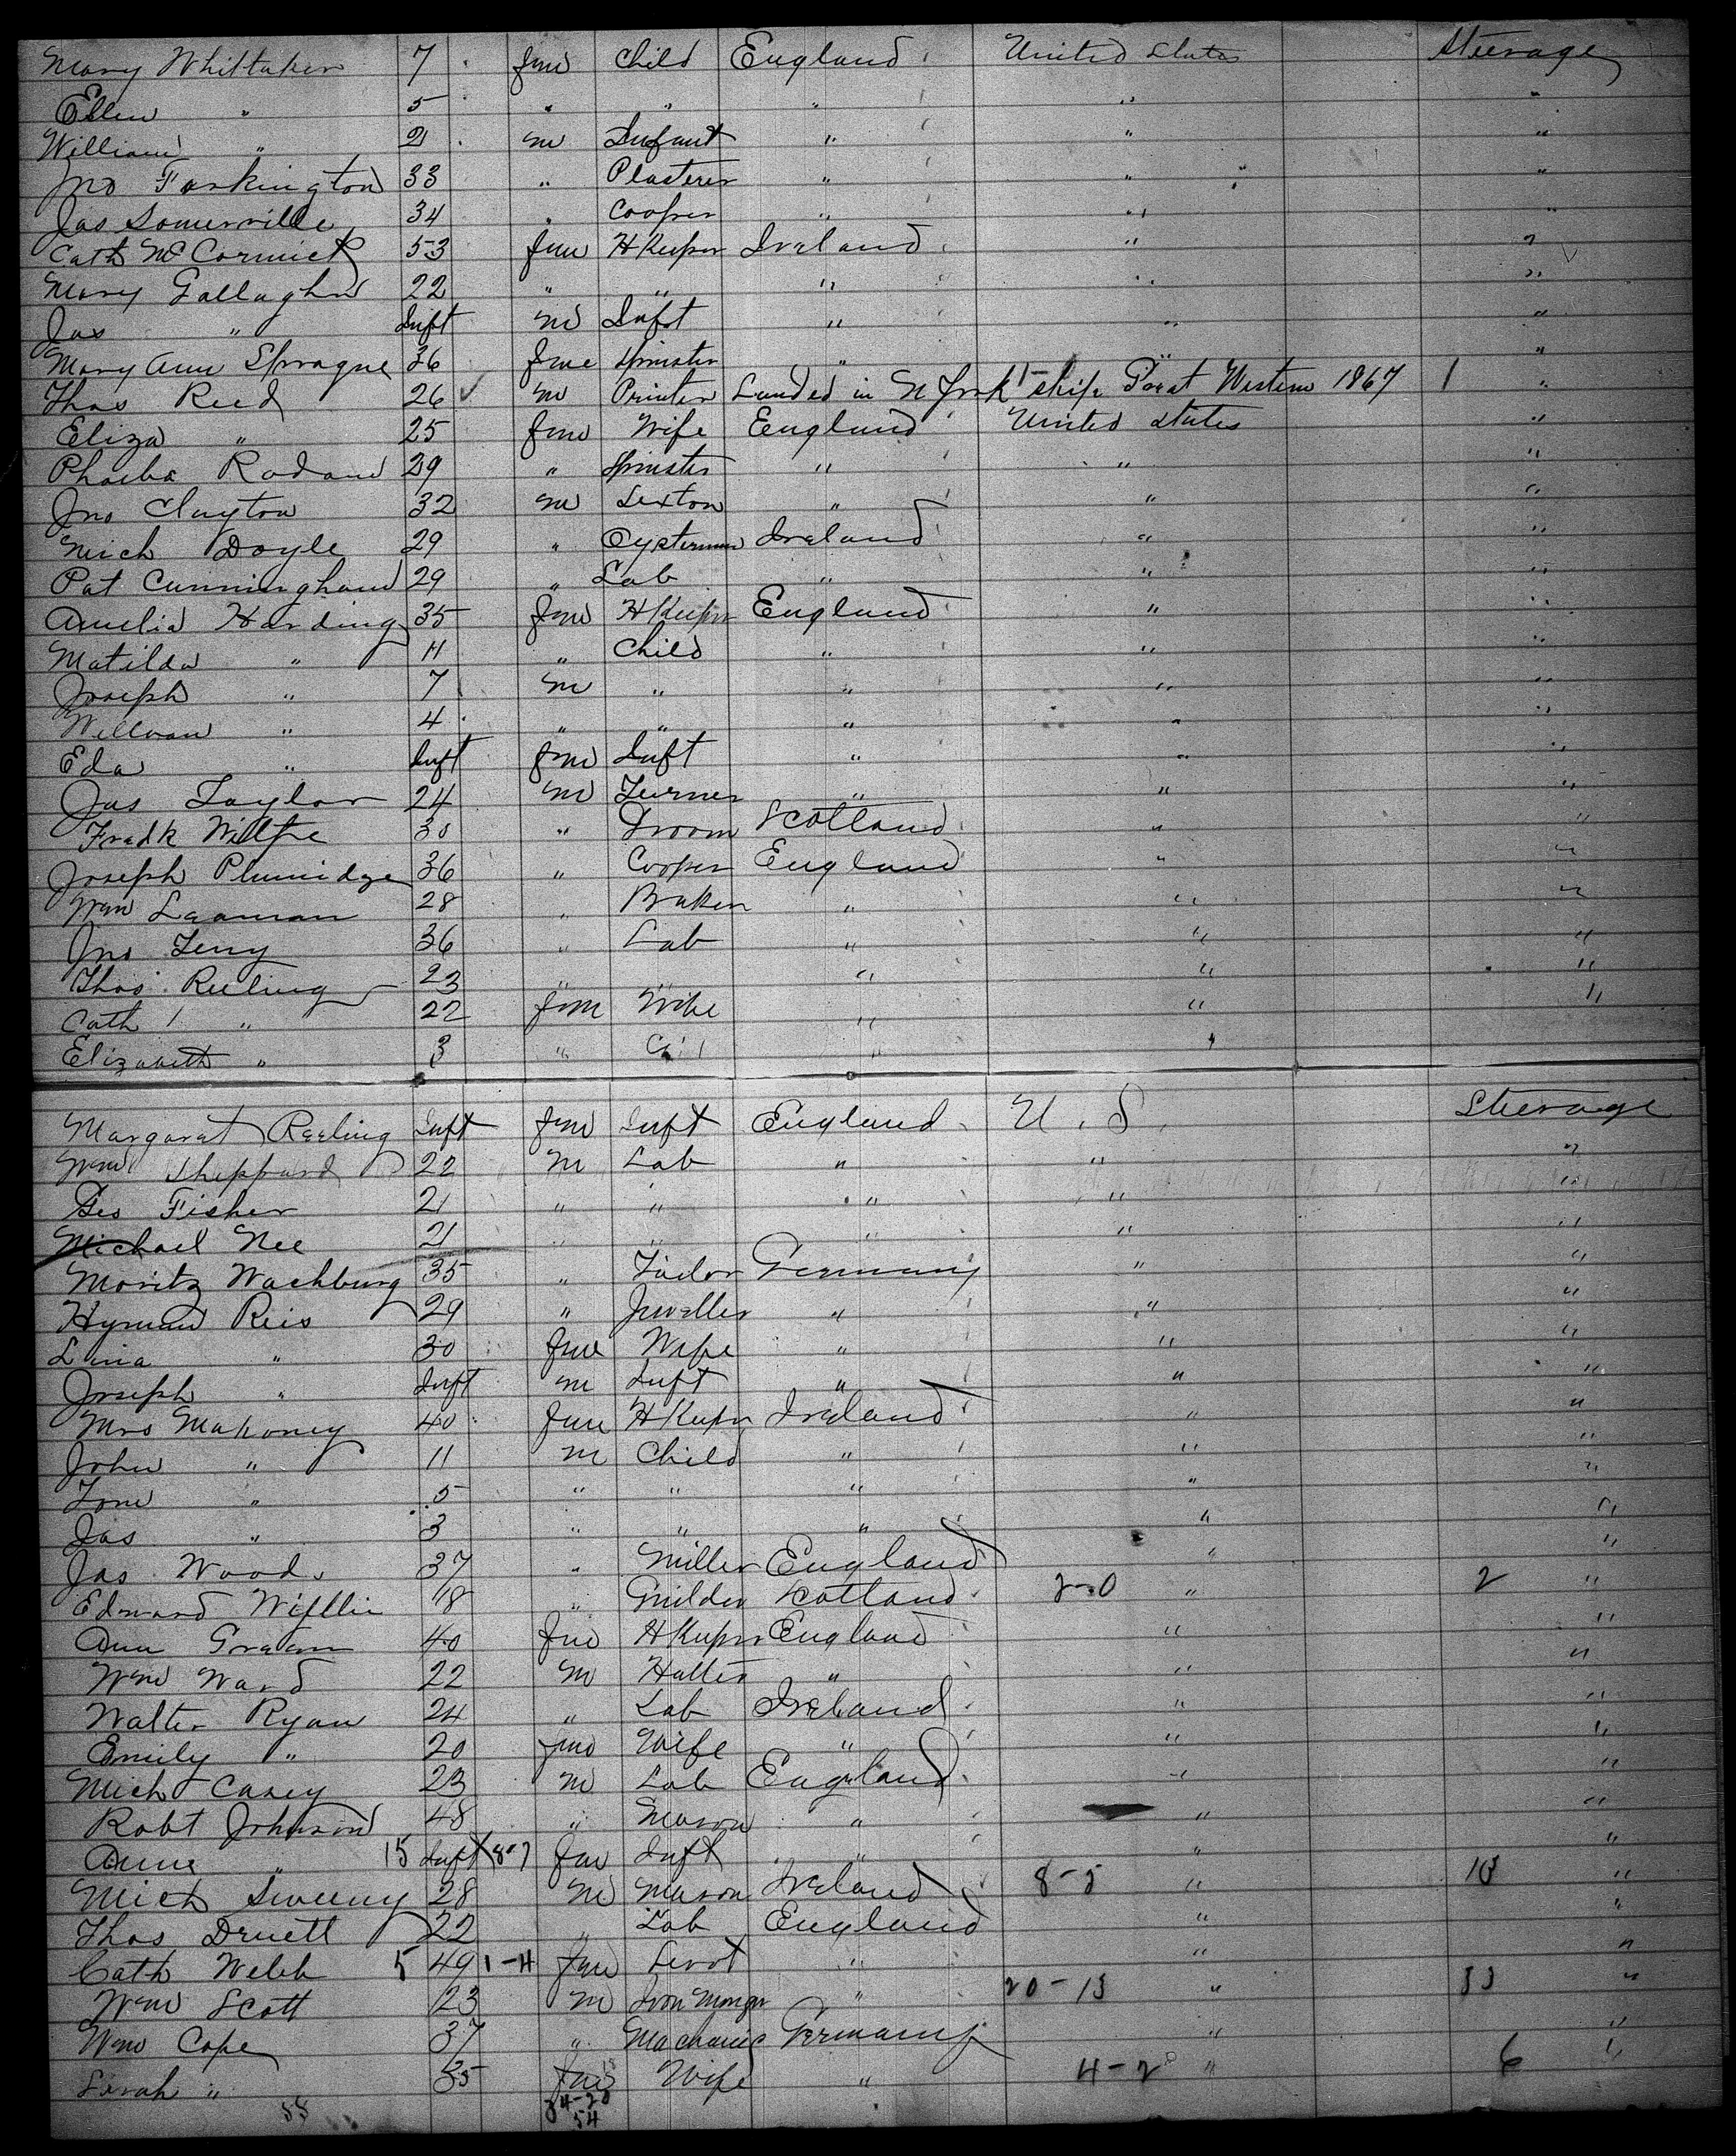 Mary Whittaker 7 fem Child England United States Steerage
Ellen " 5 " " " " "
William " 2 m Infant " " "
Jno Farkington 33 " Plasterer " " "
Jas Somerville 34 " Cooper " " "
Cath McCormick 53 fem H Keeper Ireland " "
Mary Gallagher 22 " " " " "
Jas " Inft m Inft " " "
Mary Ann Sprague 36 fme Spinster " " "
Thos Reed 26 ✓ m Printer Landed in N York ship Great Western 1867 1 "
Eliza " 25 fem Wife England United States "
Phoeba 29 " Spinster " " "
Jno Clayton 32 m Sexton " " "
Mich Doyle 29 " Oysterman Ireland " "
Pat Cunningham 29 " Lab " " "
Amelia Harding 35 fem H Keeper England " "
Matilda " 11 " Child " " "
Joseph " 7 m " " " "
William " 4 " " " " "
Eda " Inft fem Inft " " "
Jas Taylor 24 m Turner " " "
Fredk 30 " Groom Scotland " "
Joseph Plumidge 36 " Cooper England " "
Wm Leaman 28 " Baker " " "
Jno Terry 36 " Lab " " "
Thos Reeling 23 " " " " "
Cath " 22 fem Wife " " "
Elizabeth " 3 " " "
Margaret Reeling Inft fem Inft England U.S. Steerage
Wm Sheppard 22 m Lab " " "
Geo Fisher 21 " " " " "
Michael Nee 21 " " " " "
Moritz Wachburg 35 " Tailor Germany " "
Hyman Reis 29 " Jeweller " " "
Lina " 30 fme Wife " " "
Joseph " Inft m Inft " " "
Mrs Mahoney 40 fem H Keeper Ireland " "
John " 11 m Child " " "
Tom " 5 " " " " "
Jas " 3 " " " " "
Jas Wood 37 " Miller England " "
Edward 18 " Scotland 2-0 " 2 "
Ann 40 fem H Keeper England " "
Wm Ward 22 m Hatter " " "
Walter Ryan 24 " Lab Ireland " "
Emily " 20 fem Wife " " "
Mich Casey 23 m Lab England " "
Robt Johnson 48 " Mason " " "
Anne " 15 Inft 8-7 fem Inft " " "
Mich Sweeny 28 m Mason Ireland 8-5 " "
Thos Druett 22 " Lab England " "
Cath Welch 5 49 1-4 fem Servt " " "
Wm Scott 23 m Iron Monger " 20-13 " 33 "
Wm Cope 37 " Machanic Germany " "
Sarah " 35 fem Wife " 4-2 " 6 "
88 34-20
54